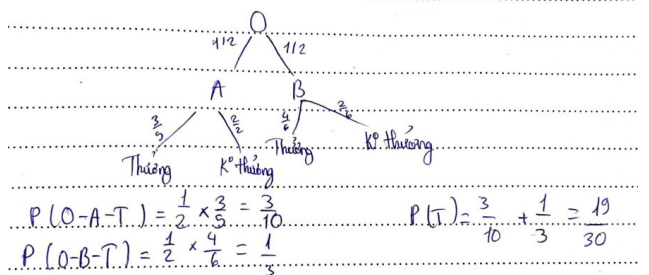 O
1/2 1/2
A B
3/5 2/2 4/6 2/6
Thưởng K° thưởng Thưởng K° thưởng
P(O-A-T) = 1/2 × 3/5 = 3/10
P(T) = 3/10 + 1/3 = 19/30
P(O-B-T) = 1/2 × 4/6 = 1/3